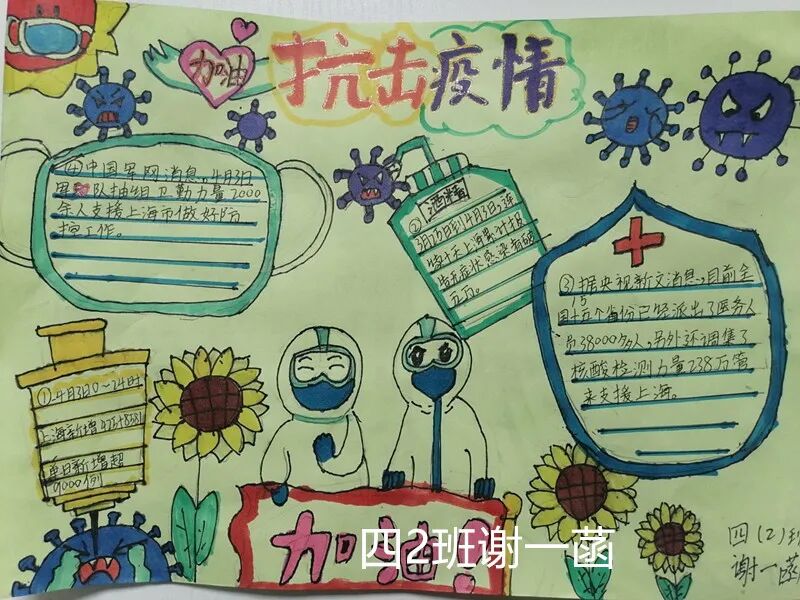 加油
抗击疫情
④中国军网消息,4月3日
队抽组卫勤力量2000
余人支援上海市做好防
控工作。
酒精
②
3月25日到4月3日,连
续十天上海累计报
告无症状感染者破
五万。
③据央视新文消息,目前全
国十五个省份已经派出了医务人
员38000多人,另外还调集了
核酸检测力量238万管
来支援上海。
①4月3日0~24时
上海新增
单日新增超
9000例
加油!
四2班谢一菡
四(2)班
谢一菡